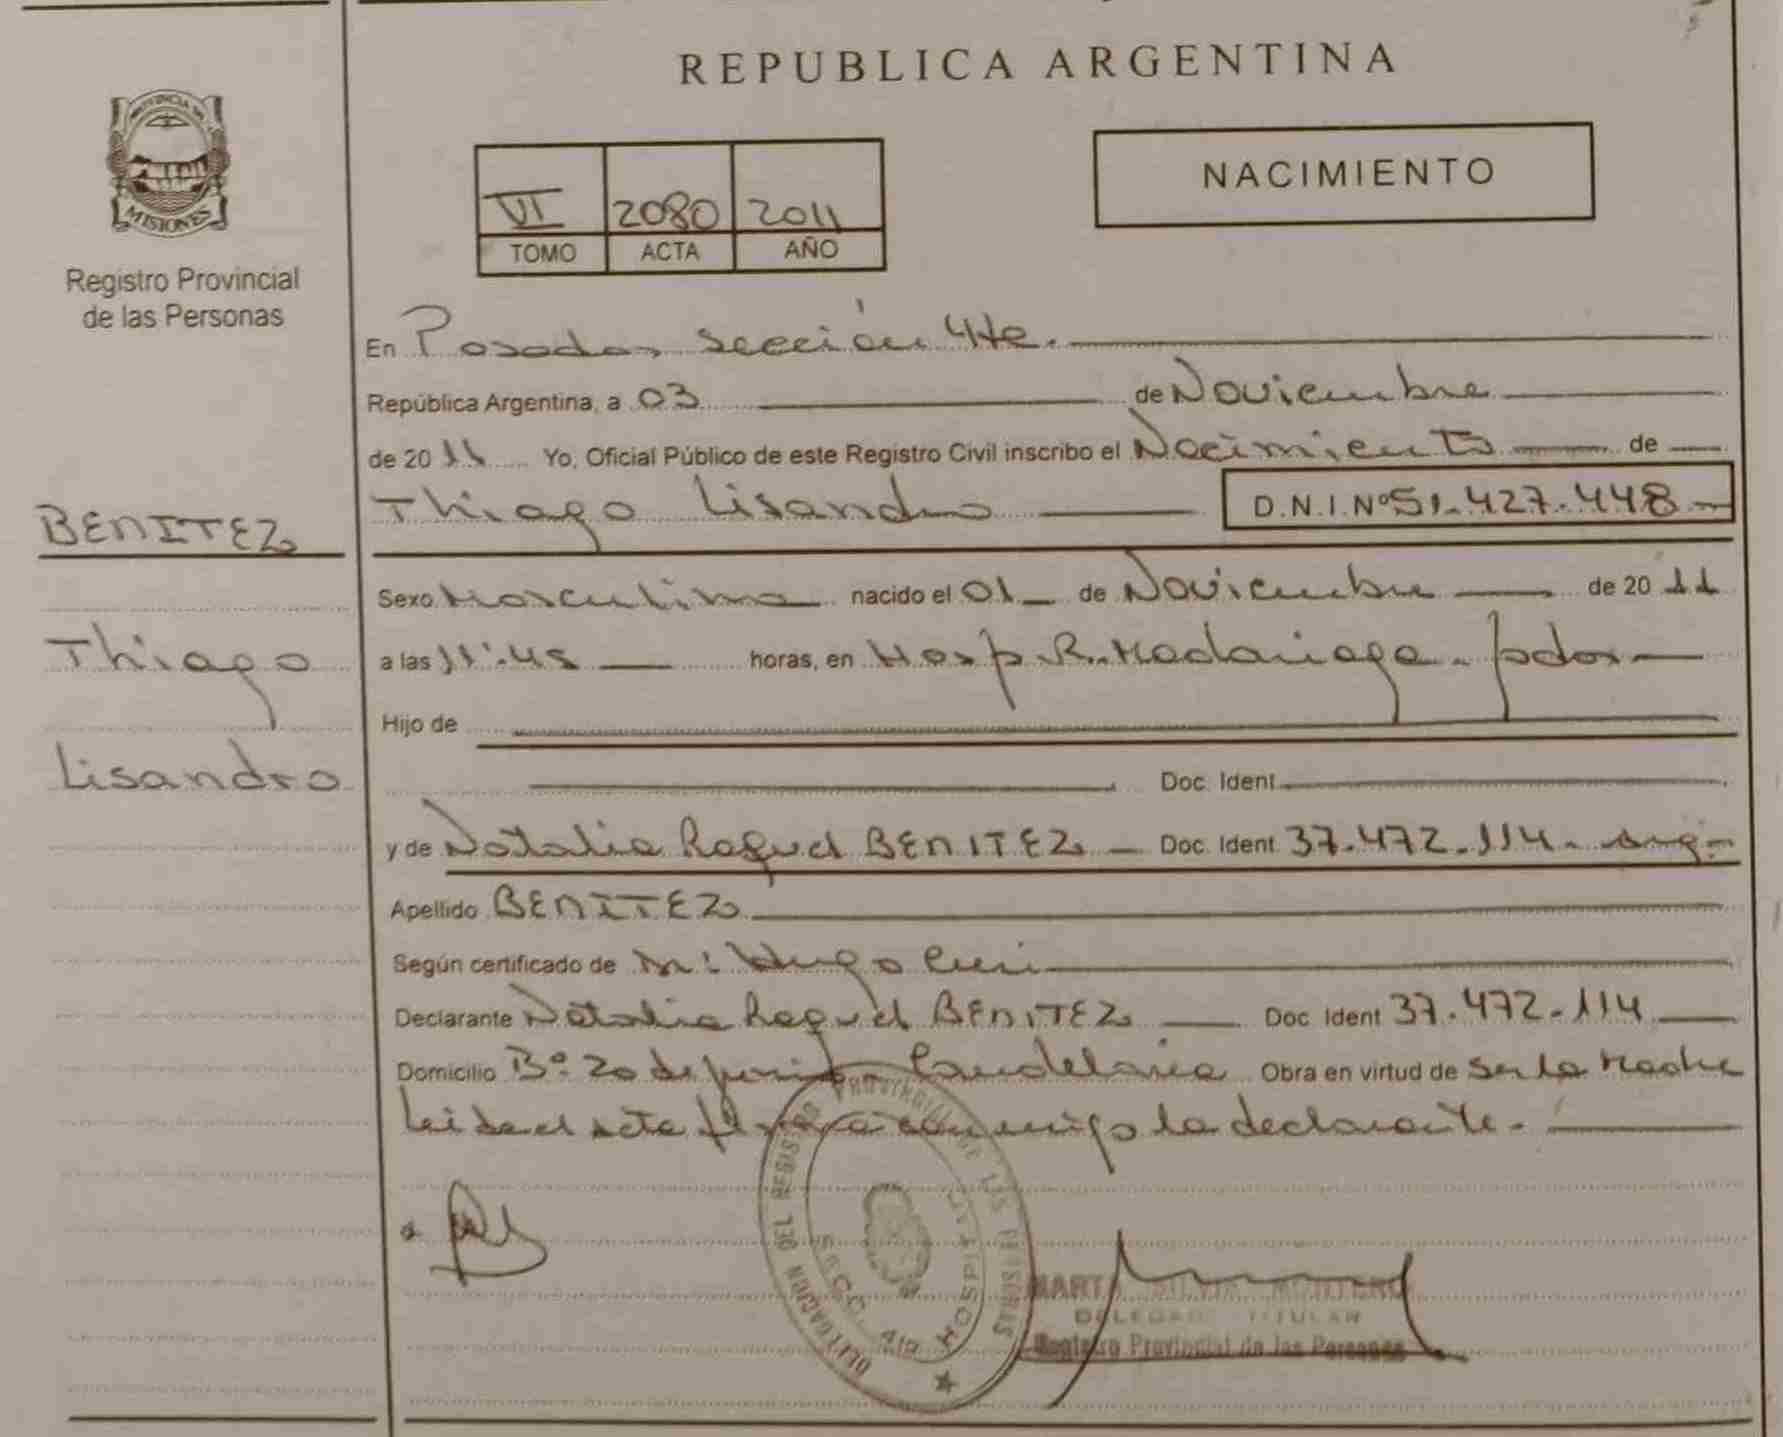 REPUBLICA ARGENTINA
PROVINCIA DE
MISIONES
Registro Provincial
de las Personas
NACIMIENTO
VI 2080 2011
TOMO ACTA AÑO
En Posadas sección 4te.
República Argentina, a 03 de Noviembre
de 2011 Yo, Oficial Público de este Registro Civil inscribo el Nacimiento de
BENITEZ
Thiago Lisandro D.N.I. Nº 51.427.448
Sexo Masculino nacido el 01 de Noviembre de 2011
Thiago
a las 11:45 horas, en Hosp. R. Madariaga - pdas
Hijo de
Lisandro
Doc. Ident
y de Natalia Raquel BENITEZ Doc. Ident 37.472.114. arg.
Apellido BENITEZ
Según certificado de Hugo
Declarante Natalia Raquel BENITEZ Doc Ident 37.472.114
Domicilio Bº 20 de junio - Candelaria Obra en virtud de ser la Madre
Leída el acta firma conmigo la declarante.
DELEGACION DEL REGISTRO PROVINCIAL DE LAS PERSONAS
SECC. 4ta HOSPITAL
MARTA SILVIA MONTERO
DELEGADA TITULAR
Registro Provincial de las Personas